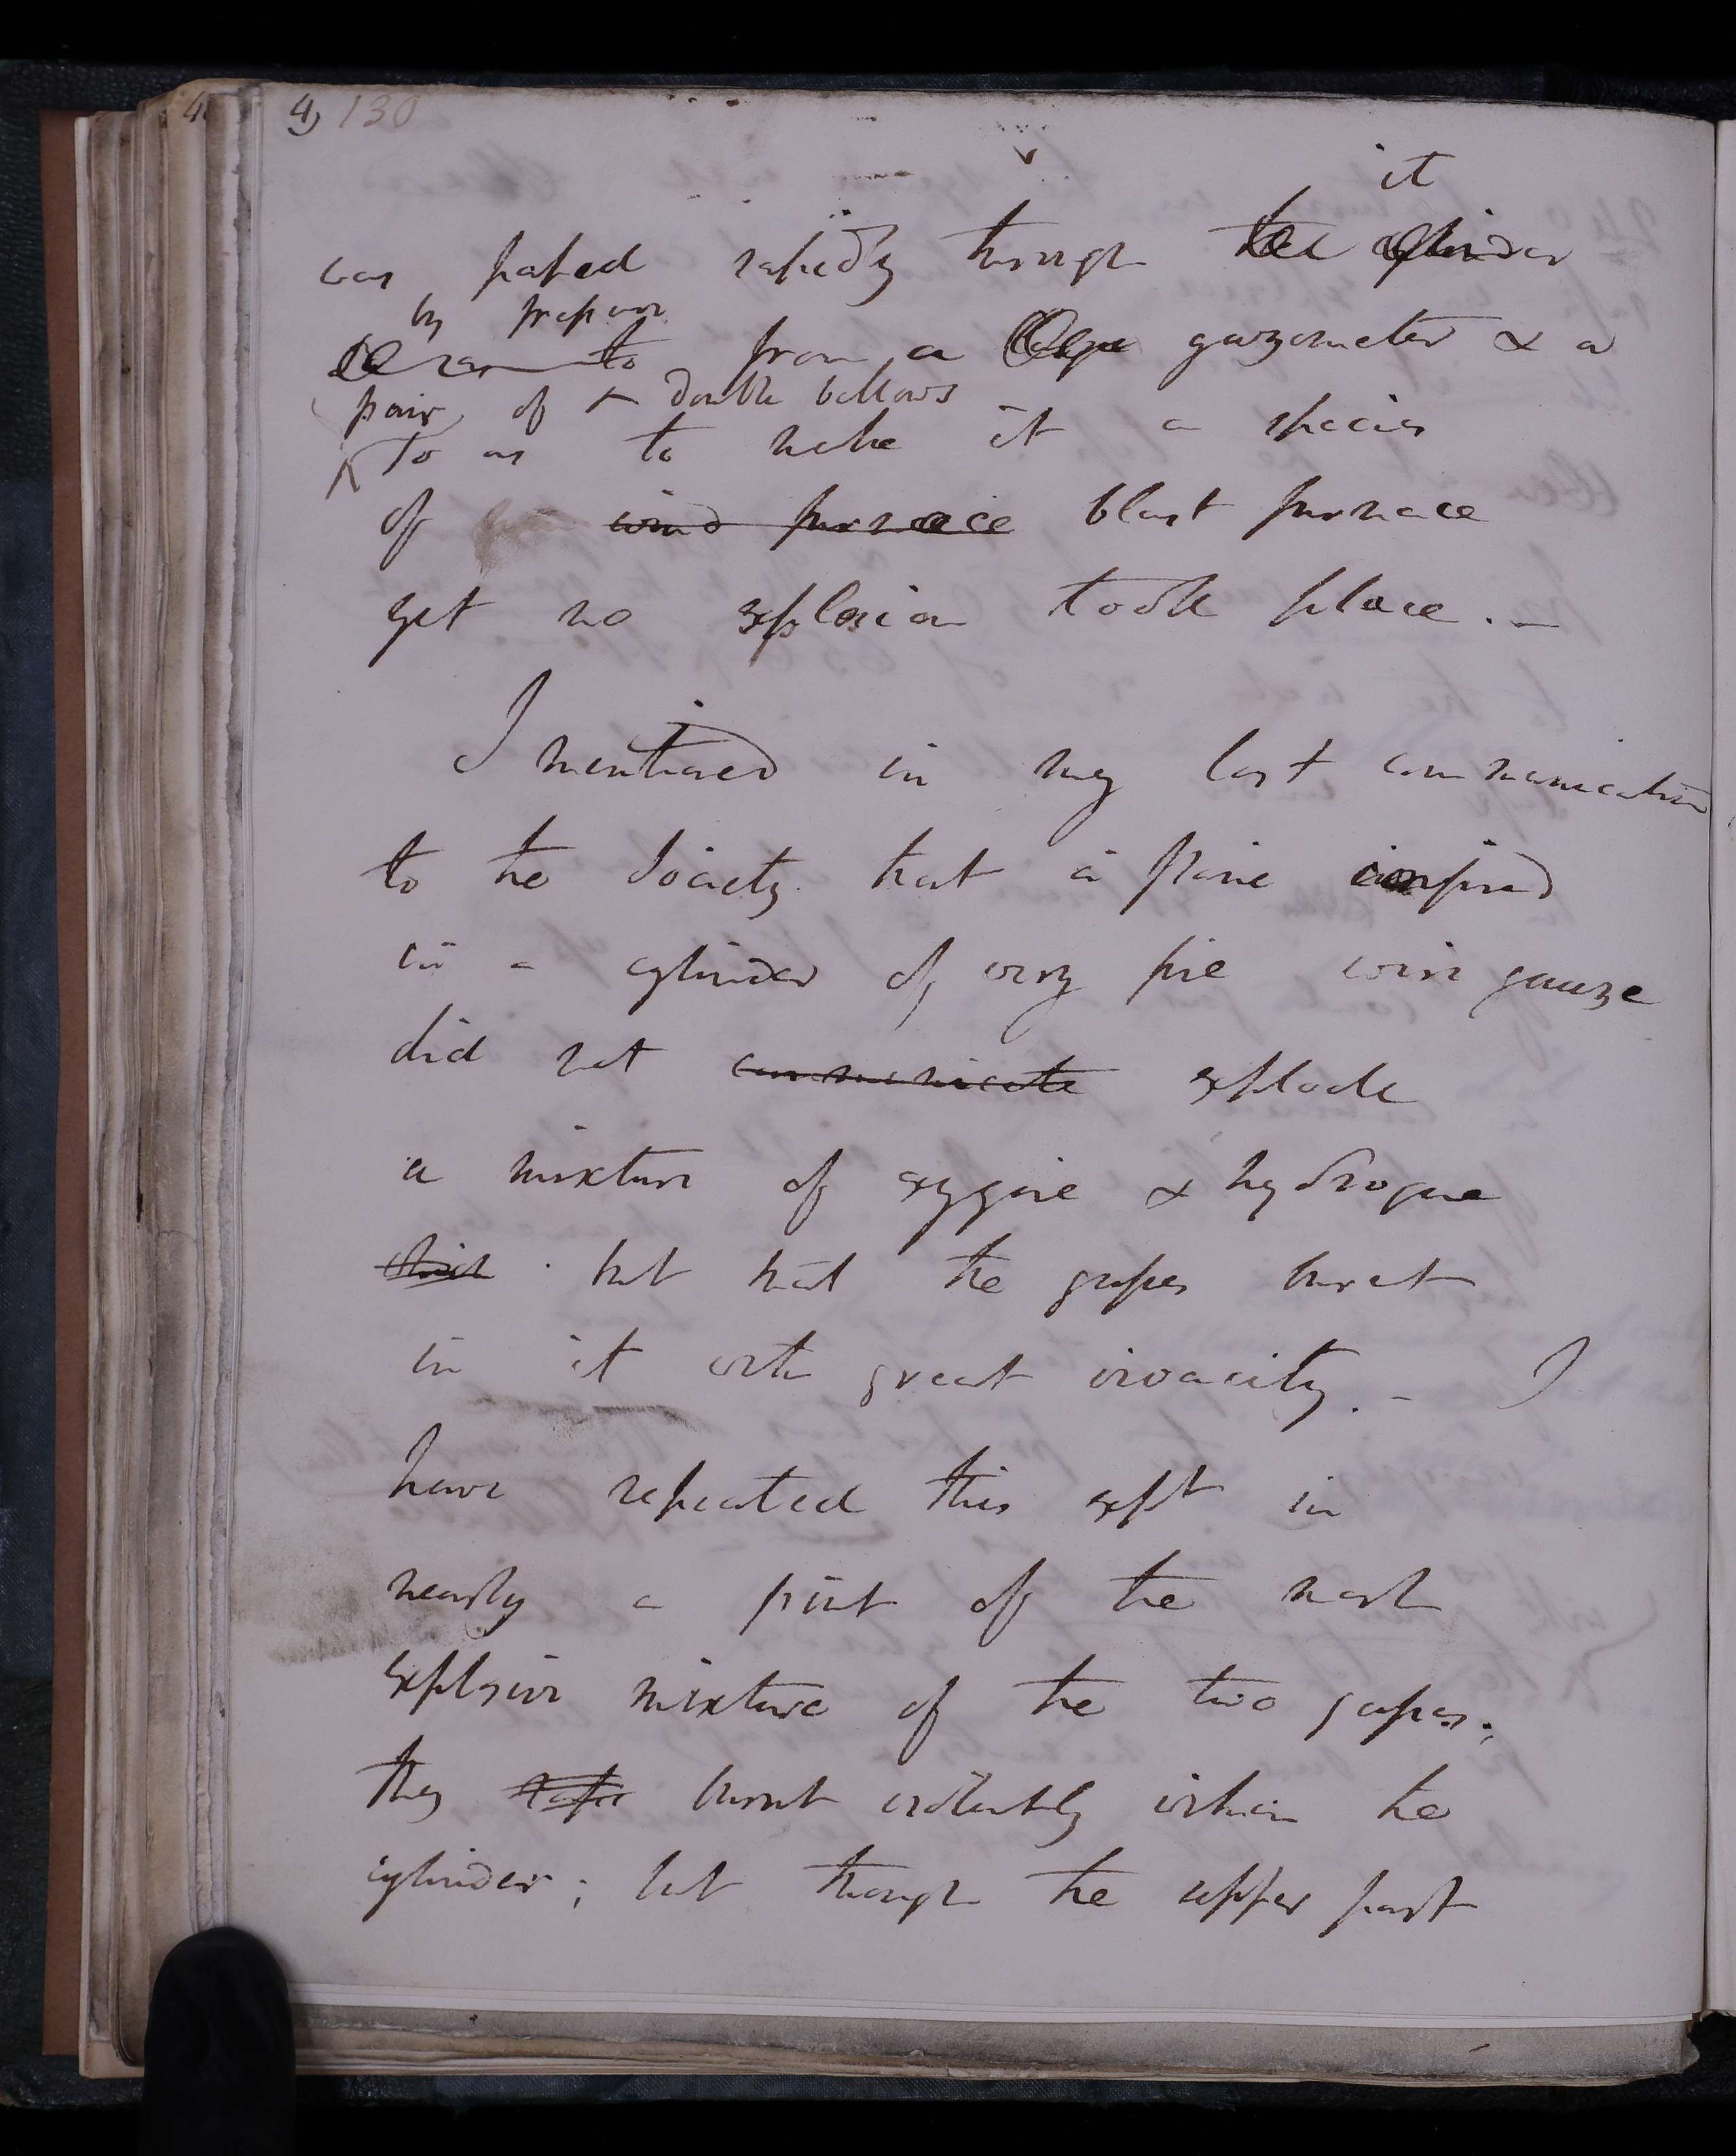 4) 130
it
was passed rapidly through the cylinder
by pressure
from a large gazometer & a
pair of double bellows
so as to make it a species
of wind furnace blast furnace
yet no explosion took place. —
I mentioned in my last communication
to the Society that a flame confined
in a cylinder of very fine wire gauze
did not communicate explode
a mixture of oxygene & hydrogene
which but that the gases burnt
in it with great vivacity. — I
have repeated this expt in
nearly a pint of the most
explosive mixture of the two gases;
they burnt violently within the
cylinder; but though the upper part